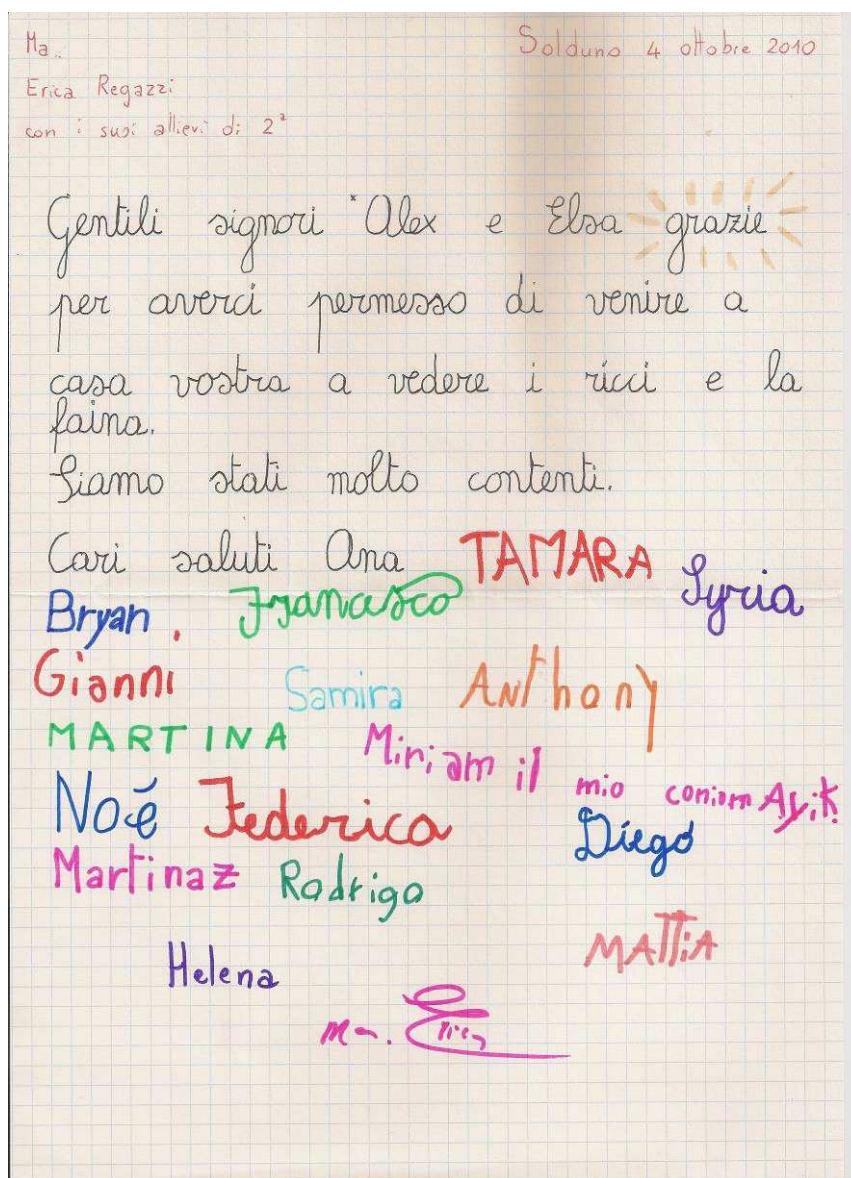 Ma..
Solduno 4 ottobre 2010
Erica Regazzi
con i suoi allievi di 2ª
Gentili signori Alex e Elsa grazie
per averci permesso di venire a
casa vostra a vedere i ricci e la
faina.
Siamo stati molto contenti.
Cari saluti Ana TAMARA
Bryan, Francesco Syria
Gianni Samira Anthony
MARTINA Miriam il mio coniom Ayik
Noé Federica Diego
Martinaz Rodrigo
Helena MATTiA
Ma. Erica